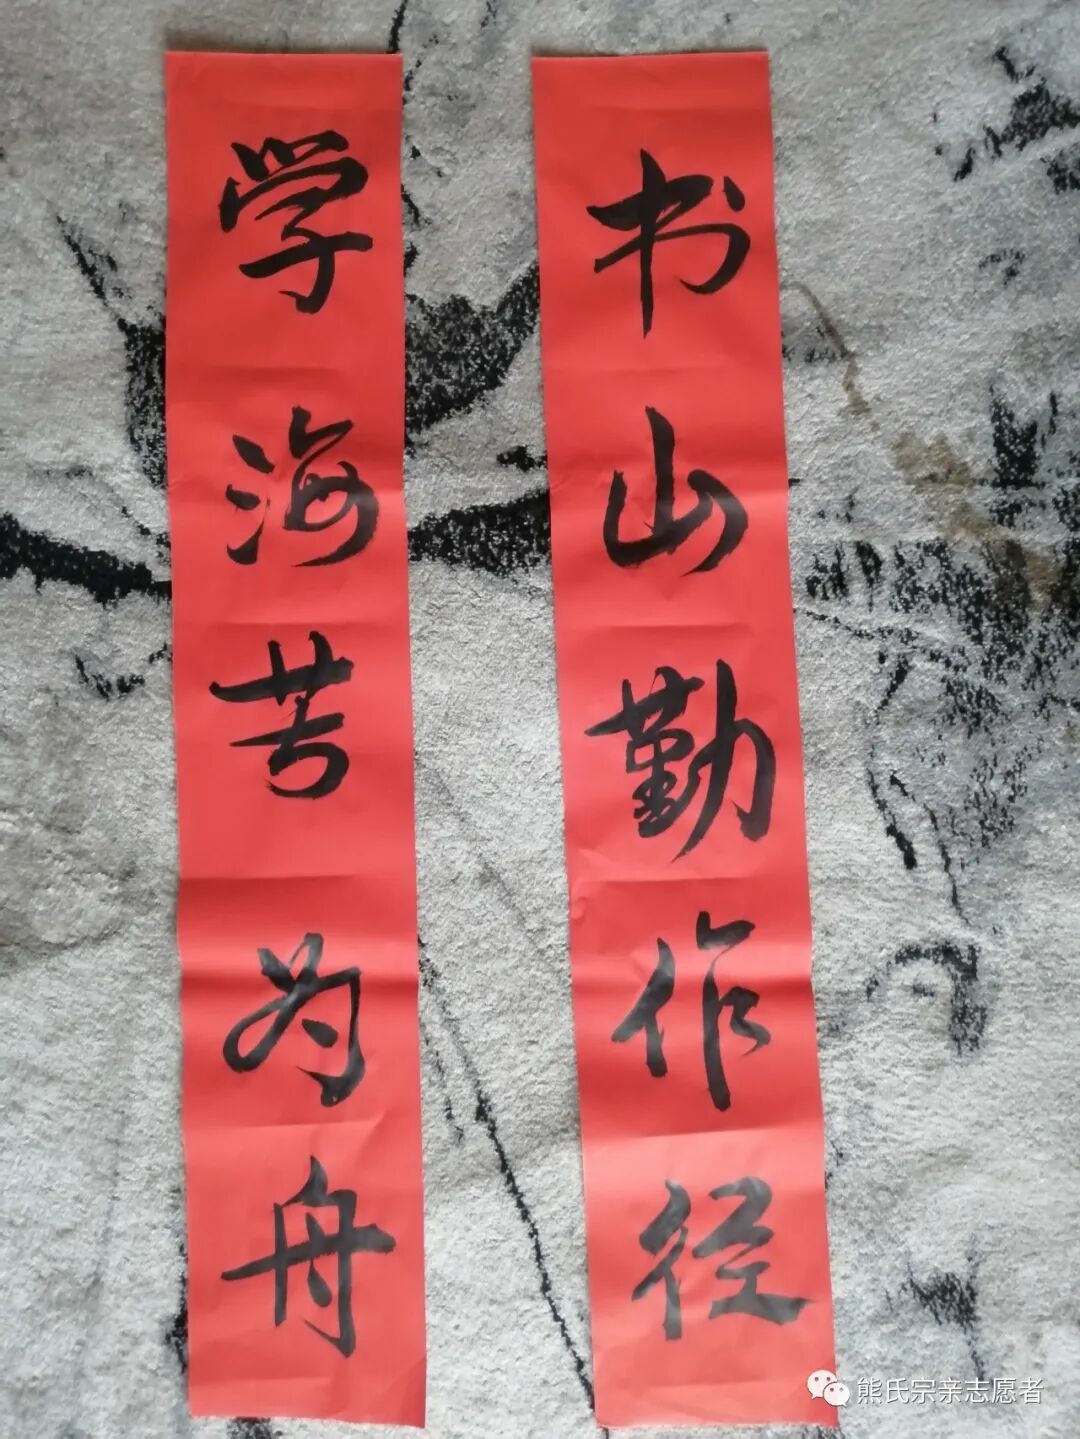 书山勤作径
学海苦为舟
熊氏宗亲志愿者